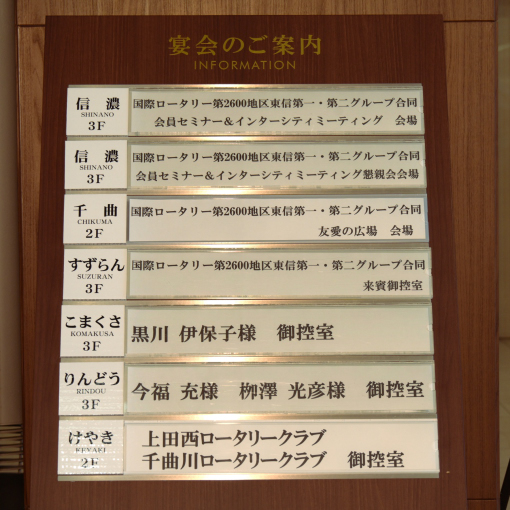 宴会のご案内
INFORMATION
信濃
SHINANO
3F
国際ロータリー第2600地区東信第一・第二グループ合同
会員セミナー&インターシティミーティング 会場
信濃
SHINANO
3F
国際ロータリー第2600地区東信第一・第二グループ合同
会員セミナー&インターシティミーティング懇親会会場
千曲
CHIKUMA
2F
国際ロータリー第2600地区東信第一・第二グループ合同
友愛の広場 会場
すずらん
SUZURAN
3F
国際ロータリー第2600地区東信第一・第二グループ合同
来賓御控室
こまくさ
KOMAKUSA
3F
黒川 伊保子様 御控室
りんどう
RINDOU
3F
今福 充様 栁澤 光彦様 御控室
けやき
KEYAKI
2F
上田西ロータリークラブ
千曲川ロータリークラブ 御控室